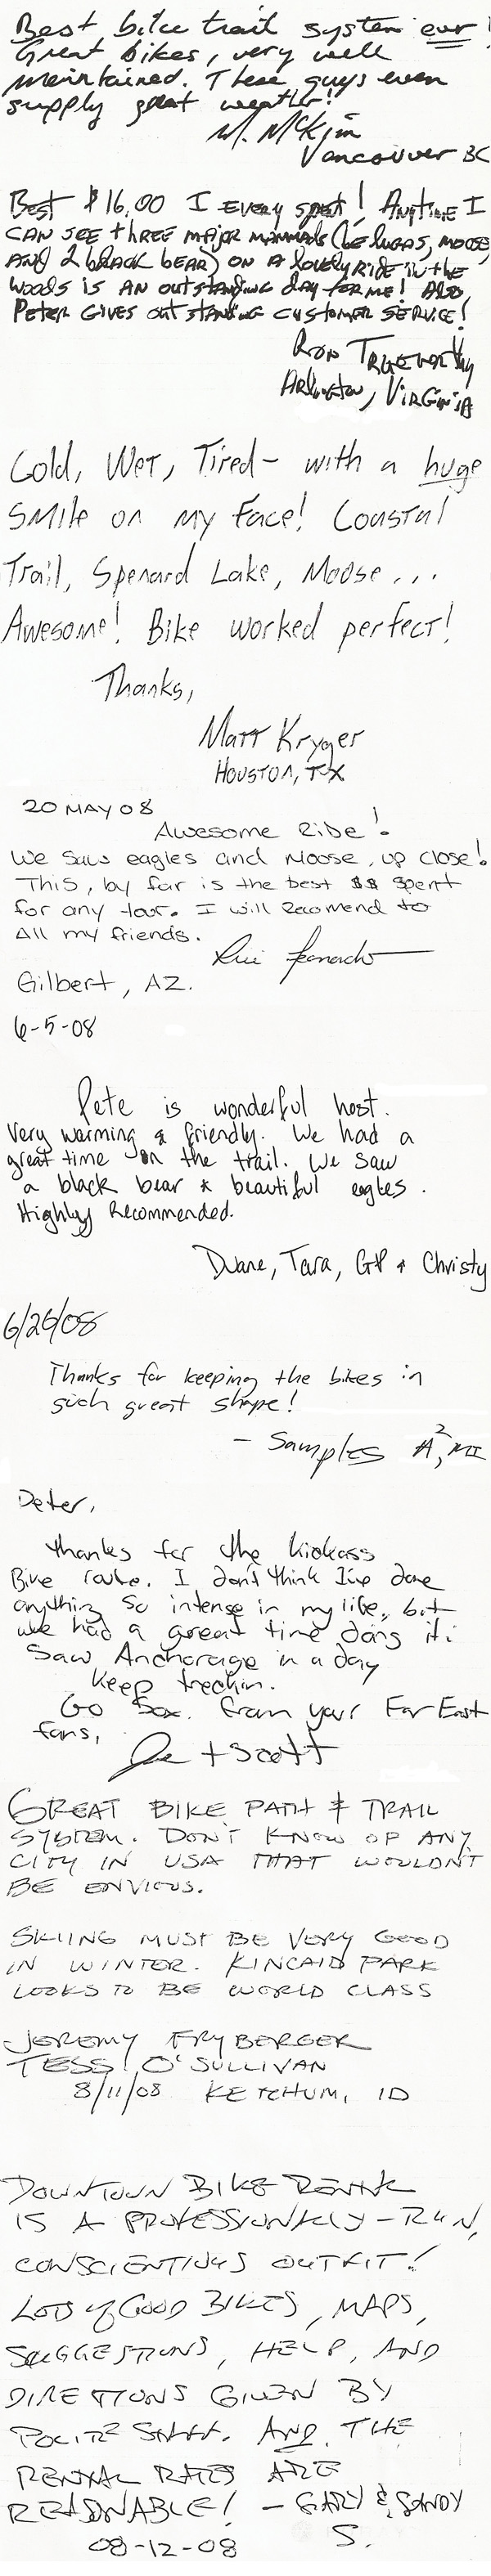 Best bike trail system ever!
Great bikes, very well
maintained. These guys even
supply great weather!
M. McKim
Vancouver BC
Best $16.00 I every spent! Anytime I
can see three major mammals (belugas, moose,
and 2 black bear) on a lovely ride in the
woods is an outstanding day for me! Also
Peter gives outstanding customer service!
Ron
Arlington, Virginia
Cold, Wet, Tired - with a huge
Smile on my Face! Coastal
Trail, Spenard Lake, Moose...
Awesome! Bike worked perfect!
Thanks,
Matt Kryger
Houston, TX
20 MAY 08
Awesome Ride!
We saw eagles and Moose, up close!
This, by far is the best $$ spent
for any tour. I will Recomend to
All my friends.
Gilbert, AZ.
6-5-08
Pete is wonderful host.
Very warming & friendly. We had a
great time on the trail. We saw
a black bear & beautiful eagles.
Highly Recommended.
Duane, Tara, GP & Christy
6/26/08
Thanks for keeping the bikes in
such great shape!
- Samples A², MI
Peter,
Thanks for the kickass
Bike route. I don't think I've done
anything so intense in my life, but
we had a great time doing it.
Saw Anchorage in a day
Keep treckin.
Go Sox. From your Far East
fans,
+ Scott
GREAT BIKE PATH & TRAIL
SYSTEM. DON'T KNOW OF ANY
CITY IN USA THAT WOULDN'T
BE ENVIOUS.
SKIING MUST BE VERY GOOD
IN WINTER. KINCAID PARK
LOOKS TO BE WORLD CLASS
JEREMY FRYBERGER
TESS O'SULLIVAN
8/11/08 KETCHUM, ID
DOWNTOWN BIKE RENTAL
IS A PROFESSIONALLY-RUN,
CONSCIENTIOUS OUTFIT!
LOTS of GOOD BIKES, MAPS,
SUGGESTIONS, HELP, AND
DIRECTIONS GIVEN BY
POLITE STAFF. AND THE
RENTAL RATES ARE
REASONABLE! - GARY & SANDY
08-12-08 S.